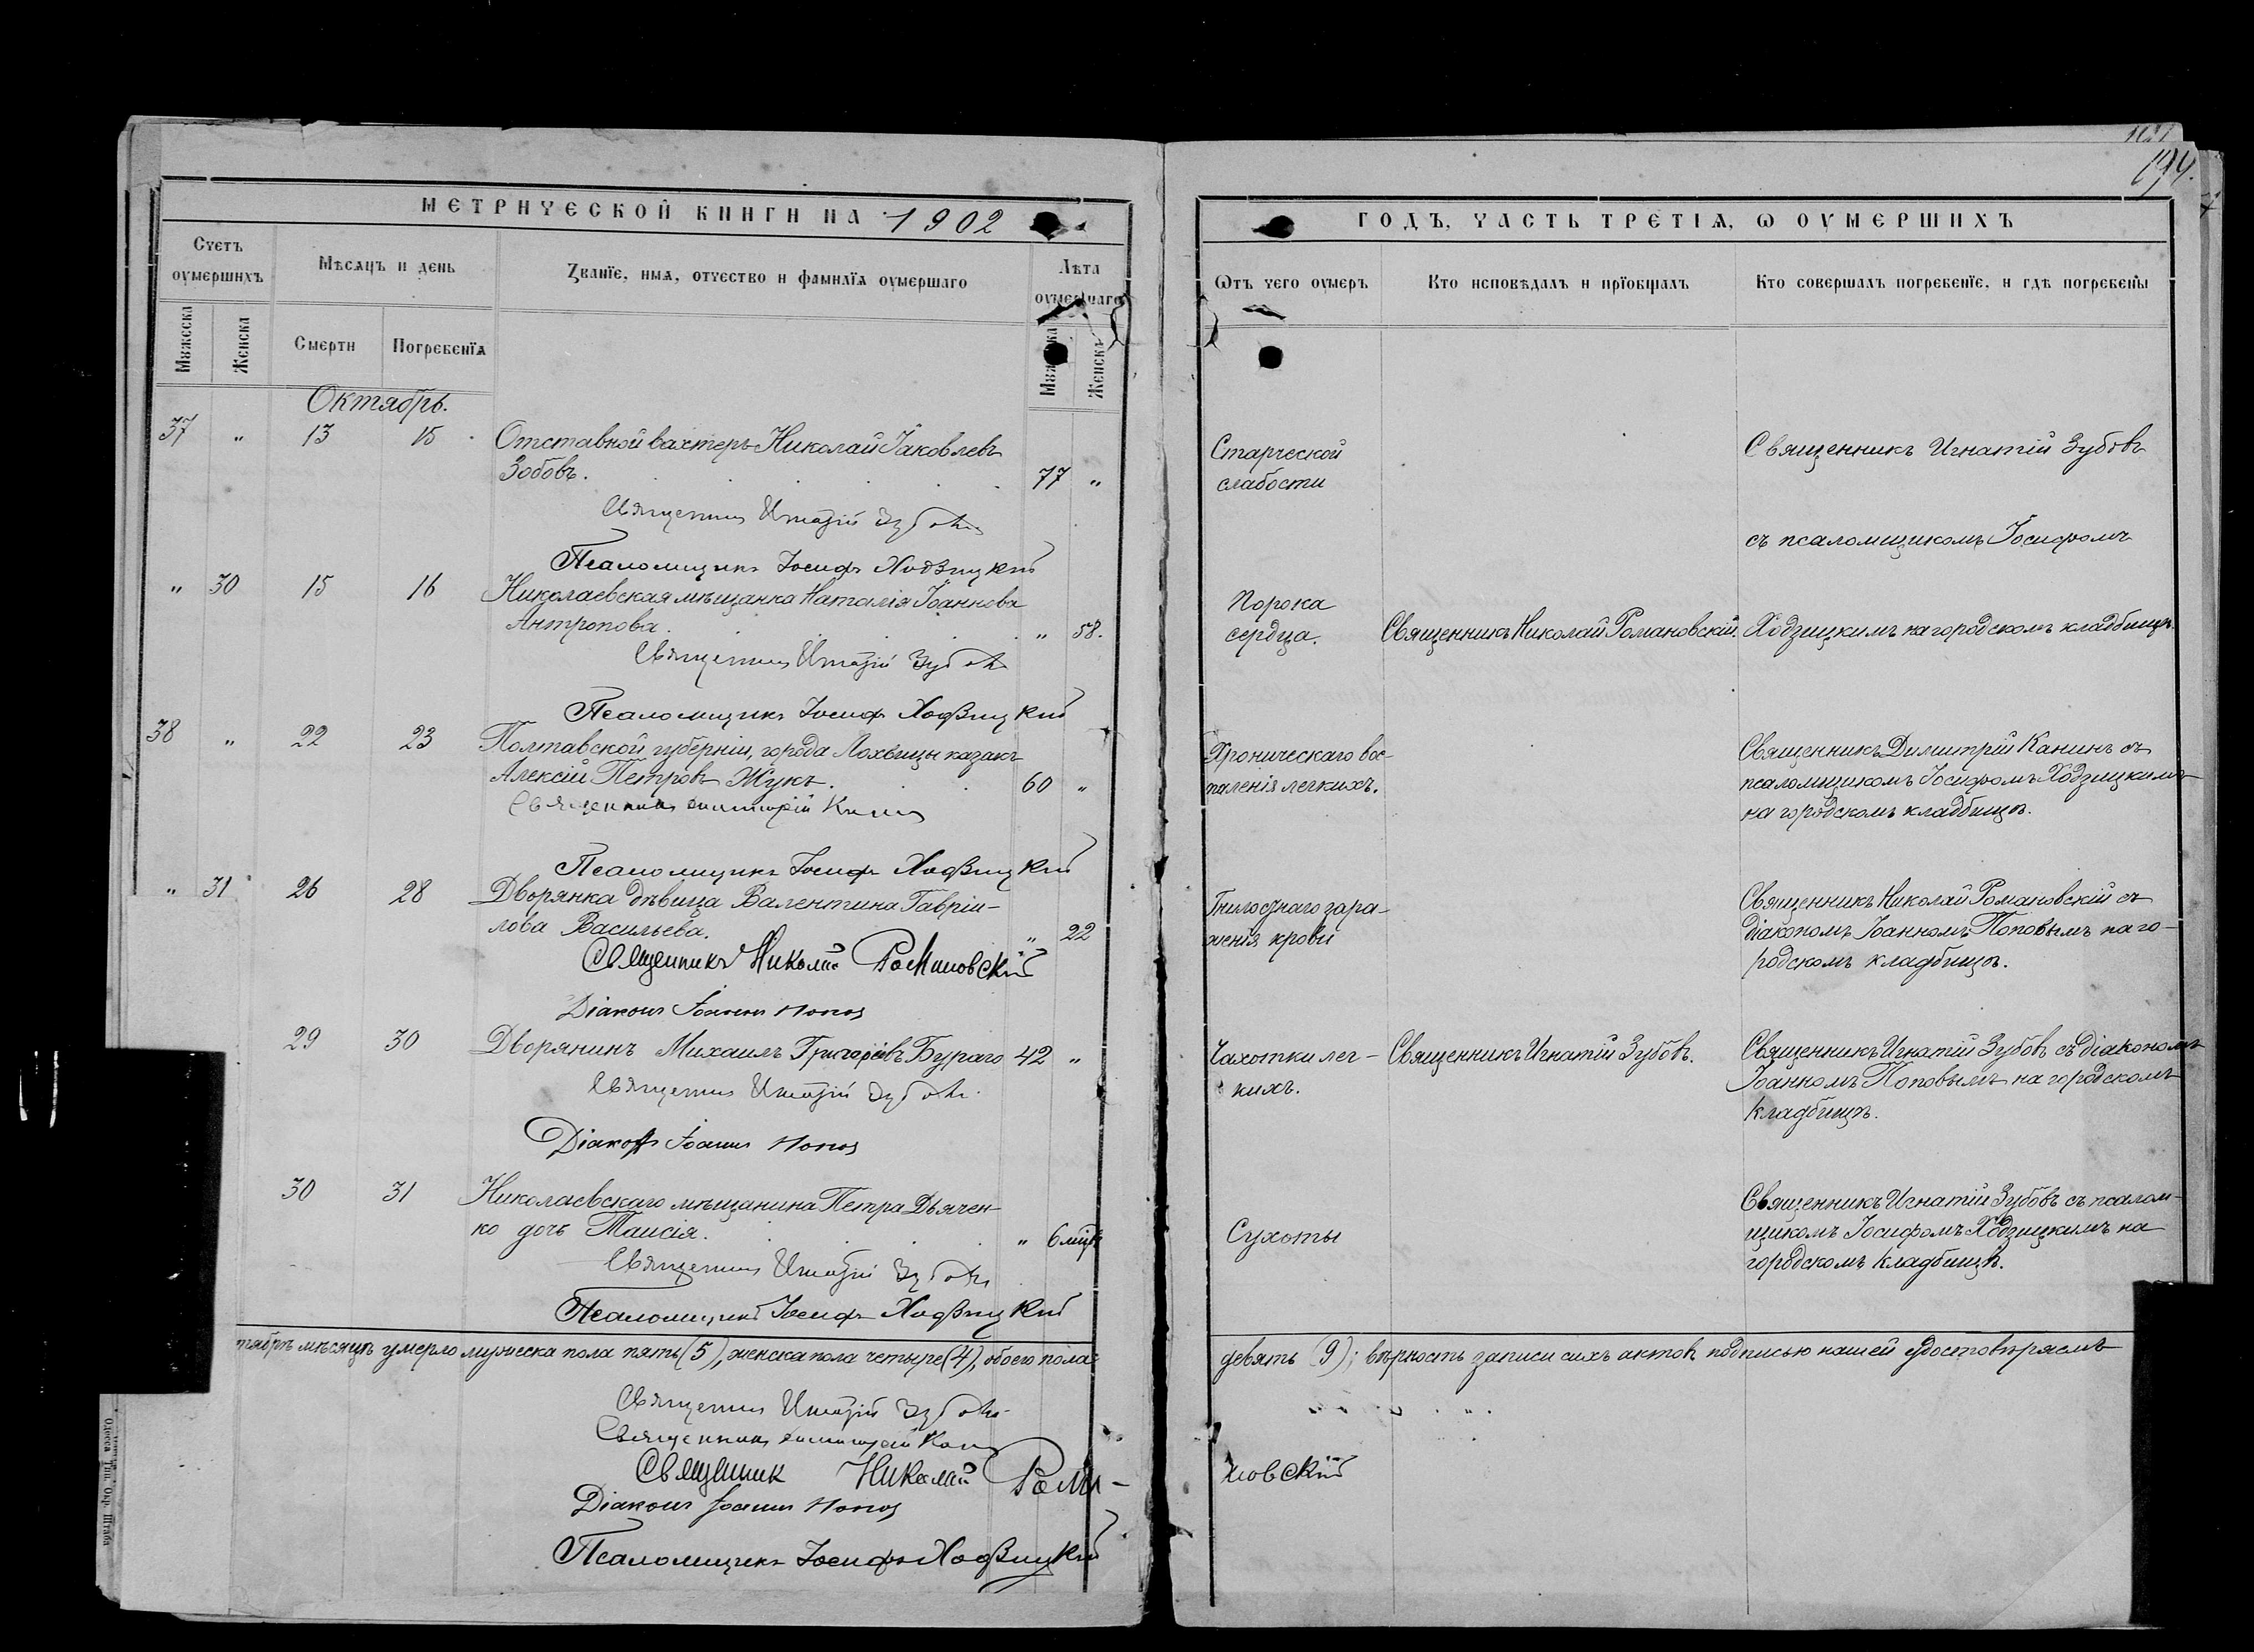 МЕТРИЧЕСКОЙ КНИГИ НА 1902
Счетъ оумершихъ
Мѣсяцъ и день
Званїе, имя, отчество и фамилїя оумершаго
Лѣта оумершаго
Мужеска
Женска
Смерти
Погребенїя
Мужеска
Женска
Октябрь.
37 " 13 15 Отставной вахтеръ Николай Іаковлевъ
Зобовъ. 77 "
Священникъ Игнатій Зубовъ
Псаломщикъ Іосифъ Ходзицкій
" 30 15 16 Николаевская мѣщанка Наталія Іоаннова
Антропова. " 58.
Священникъ Игнатій Зубовъ
Псаломщикъ Іосифъ Ходзицкій
38 " 22 23 Полтавской губерніи, города Лохвицы казакъ
Алексій Петровъ Жукъ. 60 "
Священникъ Димитрій Канинъ
Псаломщикъ Іосифъ Ходзицкій
" 31 26 28 Дворянка дѣвица Валентина Гавріи-
лова Васильева. " 22
Священникъ Николай Романовскій
Діаконъ Іоаннъ Поповъ
29 30 Дворянинъ Михаилъ Григоріевъ Бураго 42 "
Священникъ Игнатій Зубовъ
Діаконъ Іоаннъ Поповъ
30 31 Николаевскаго мѣщанина Петра Дьячен-
ко дочь Таисія. " 6 мѣс.
Священникъ Игнатій Зубовъ
Псаломщикъ Іосифъ Ходзицкій
тябрѣ мѣсяцѣ умерло мужеска пола пять (5), женска пола четыре (4), обоего пола
Священникъ Игнатій Зубовъ
Священникъ Димитрій Канинъ
Священник Николай Рома-
Діаконъ Іоаннъ Поповъ
Псаломщикъ Іосифъ Ходзицкій
Одесса Тип. Окр. Штаба
194.
ГОДЪ, ЧАСТЬ ТРЕТІЯ, Ѡ ОУМЕРШИХЪ
Ѿтъ чего оумеръ
Кто исповѣдалъ и прїобщалъ
Кто совершалъ погребенїе, и гдѣ погребены
Старческой
слабости
Священникъ Игнатій Зубовъ
съ псаломщикомъ Іосифомъ
Порока
сердца.
Священникъ Николай Романовскій.
Ходзицкимъ на городскомъ кладбищѣ.
Хроническаго вос-
паленія легкихъ.
Священникъ Димитрій Канинъ съ
псаломщикомъ Іосифомъ Ходзицкимъ
на городскомъ кладбищѣ.
Гнилостнаго зара-
женія крови
Священникъ Николай Романовскій съ
діакономъ Іоанномъ Поповымъ на го-
родскомъ кладбищѣ.
Чахотки лег-
кихъ.
Священникъ Игнатій Зубовъ.
Священникъ Игнатій Зубовъ съ діакономъ
Іоанномъ Поповымъ на городскомъ
кладбищѣ.
Сухоты
Священникъ Игнатій Зубовъ съ псалом-
щикомъ Іосифомъ Ходзицкимъ на
городскомъ кладбищѣ.
девять (9); вѣрность записи сихъ актовъ подписью нашей удостовѣряемъ
новскій